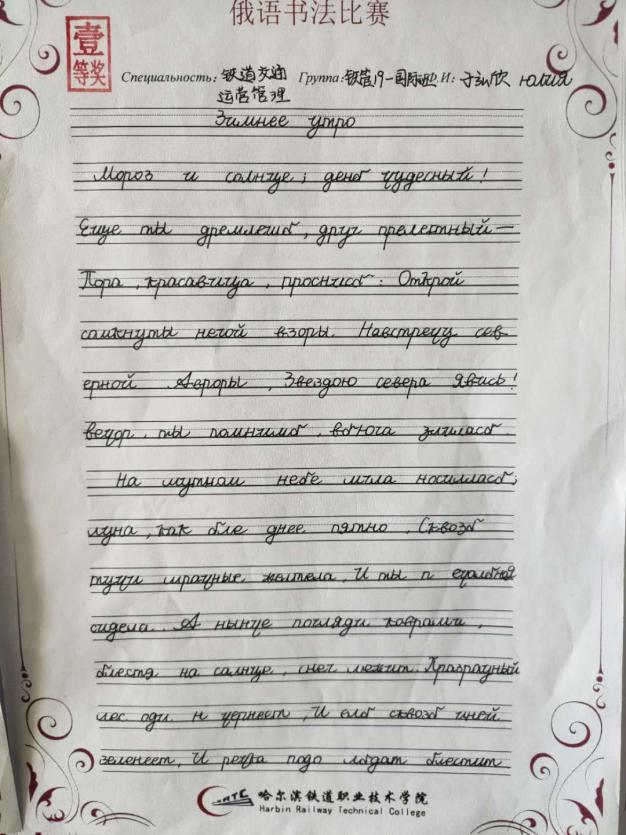 俄语书法比赛
壹等奖
Специальность: 铁道交通运营管理 Группа: 铁管19-国际班 Ф.И: 于 欣 Юлия
Зимнее утро
Мороз и солнце; день чудесный!
Еще ты дремлешь, друг прелестный—
Пора, красавица, проснись: Открой
сомкнуты негой взоры Навстречу сев-
ерной Авроры, Звездою севера явись!
Вечор, ты помнишь, вьюга злилась,
На мутном небе мгла носиллась;
луна, как бле днее пятно, Сквозь
тучи мрачные желтела, И ты п ечальная
сидела. А нынче погляди коврами,
блестя на солнце, снег лежит Празрачный
лес оди н чернеет, И ель сквозь иней
зеленеет, И речка подо льдат блестит
哈尔滨铁道职业技术学院
Harbin Railway Technical College